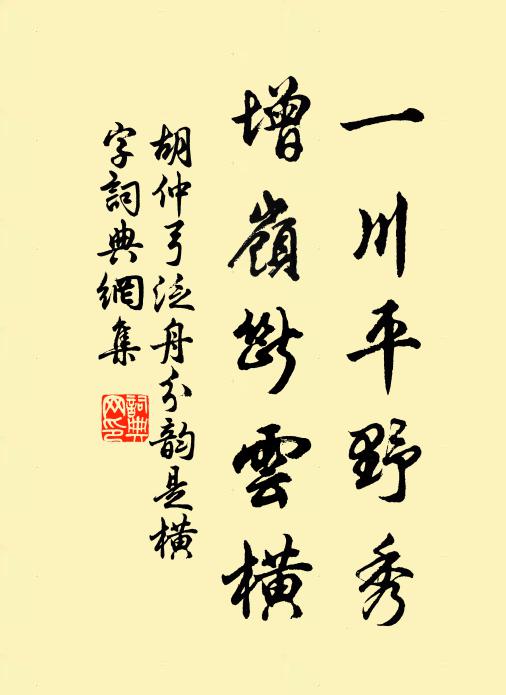 一川平野秀
增嶺斷雲橫
胡仲弓泛舟分韵是橫
字詞典網集
詞典网印